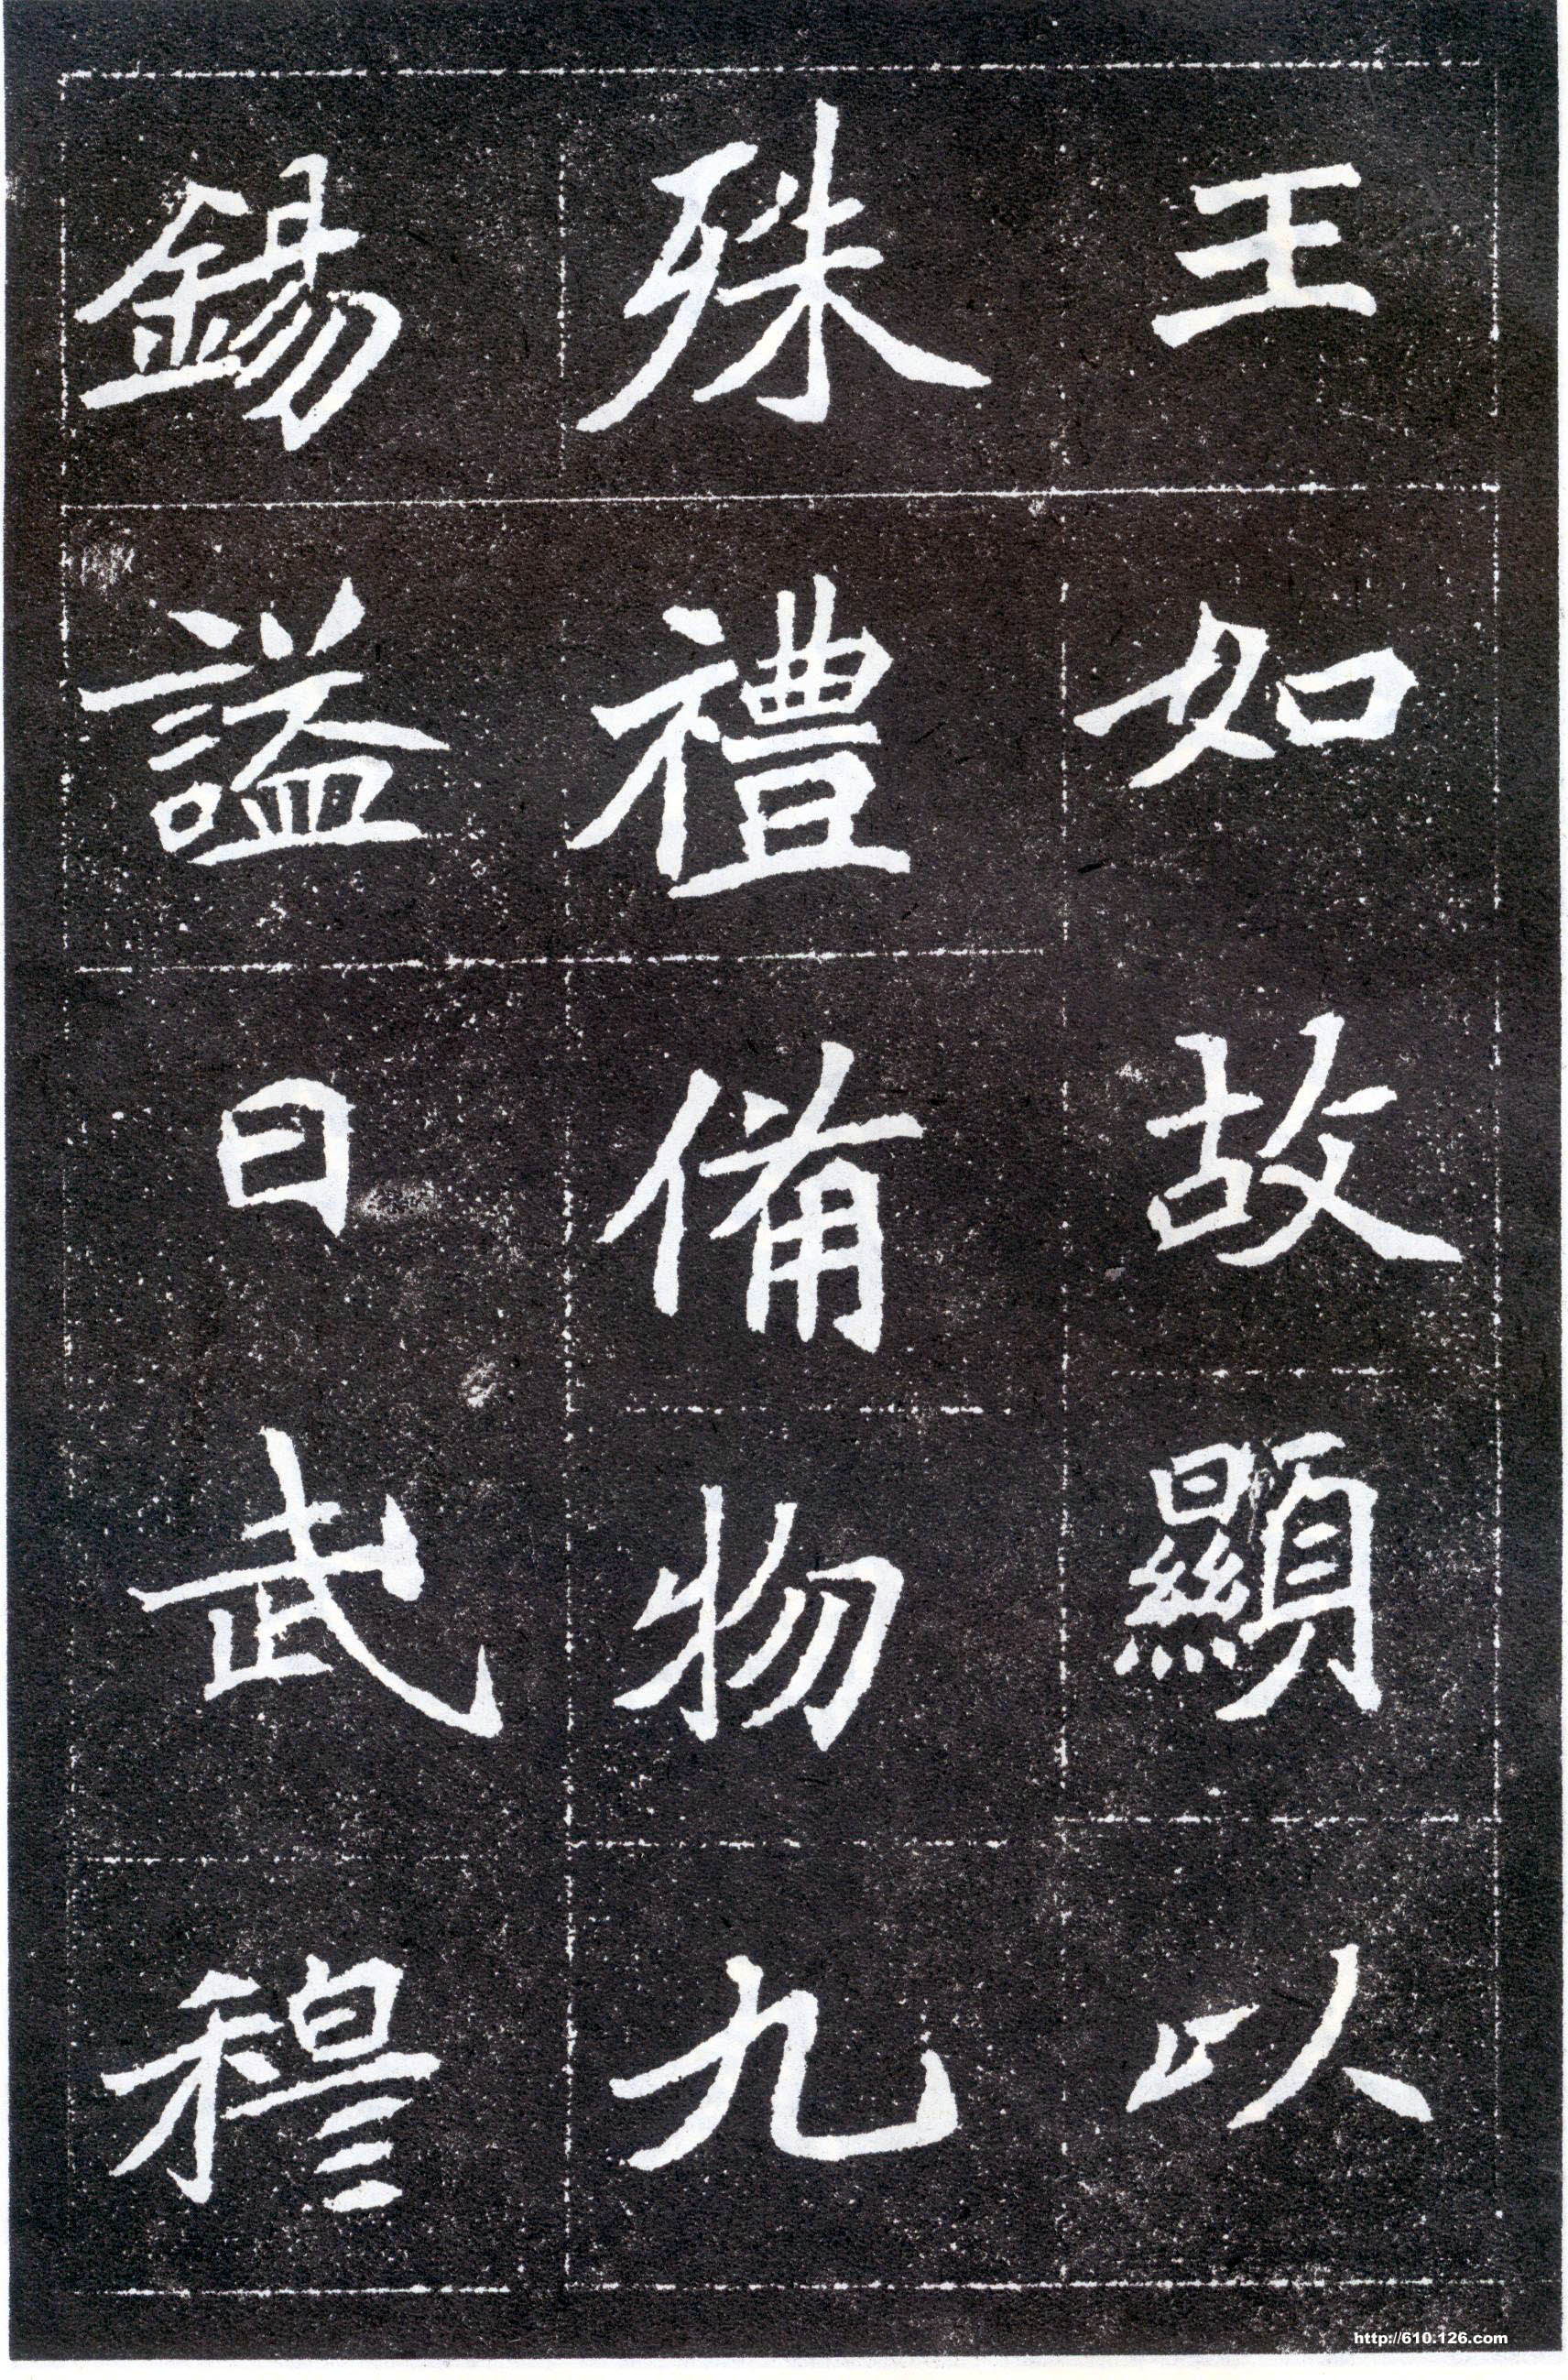 王如故顯以
殊禮備物九
錫謚曰武穆
http://610.126.com